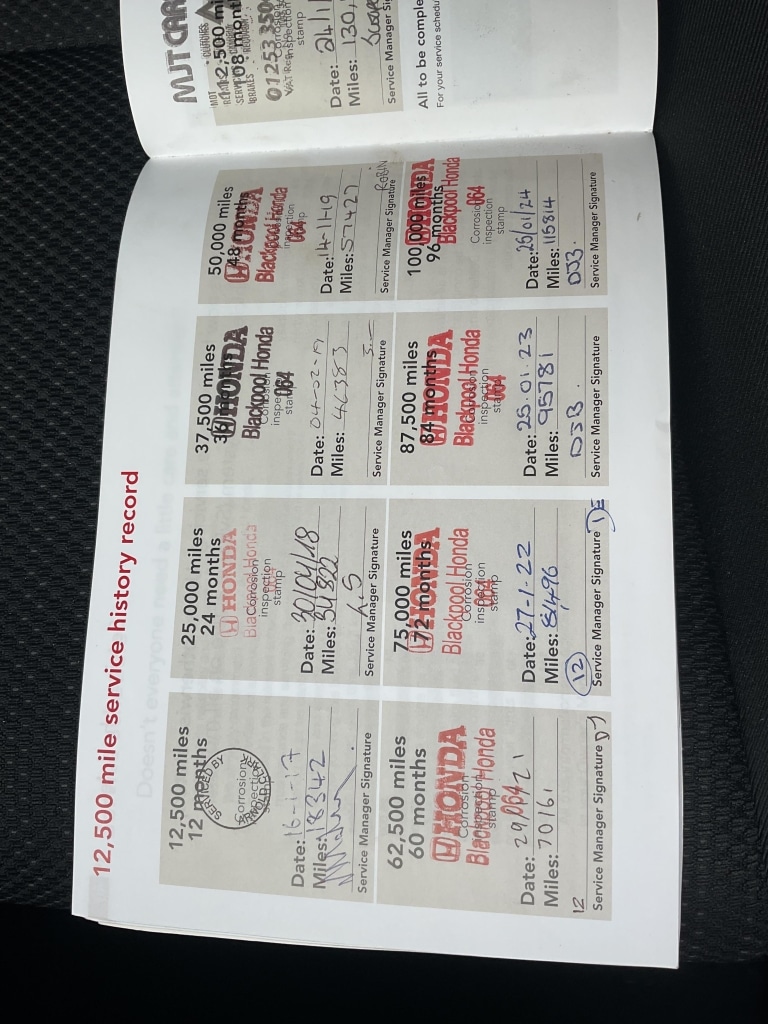 12,500 mile service history record
12,500 miles
12 months
SERVICED BY
ARNOLD CLARK
Corrosion
inspection
stamp
Date: 16-1-17
Miles: 18342
Service Manager Signature
25,000 miles
24 months
HONDA
Blackpool Honda
Corrosion
inspection
stamp
Date: 30/04/18
Miles: 34822
K.S
Service Manager Signature
37,500 miles
36
HONDA
Blackpool Honda
Corrosion
inspection
064
stamp
Date: 04-02-19
Miles: 46383
Service Manager Signature
50,000 miles
48 months
HONDA
Blackpool Honda
inspection
064
stamp
Date: 14-11-19
Miles: 57427
Service Manager Signature
ROBIN
62,500 miles
60 months
HONDA
Blackpool Honda
Corrosion
inspection
064
Date: 29 04 21
Miles: 70161
12
Service Manager Signature DJ
75,000 miles
72 months
HONDA
Blackpool Honda
Corrosion
inspection
064
stamp
Date: 27-1-22
Miles: 81,496
12
Service Manager Signature
87,500 miles
84 months
HONDA
Blackpool Honda
Corrosion
inspection
064
stamp
Date: 25.01.23
Miles: 95781
DJB.
Service Manager Signature
100,000 miles
96 months
HONDA
Blackpool Honda
064
Corrosion
inspection
stamp
Date: 25/01/24
Miles: 115814
DJB.
Service Manager Signature
MJT CAR
112,500 mi
108 month
MOT
SERVIC
BRAKES
CLUTCHES
01253 350
VAT Reg
Corrosion
inspection
stamp
Date: 24/1
Miles: 130,
Service Manager Sign
All to be comple
For your service schedu